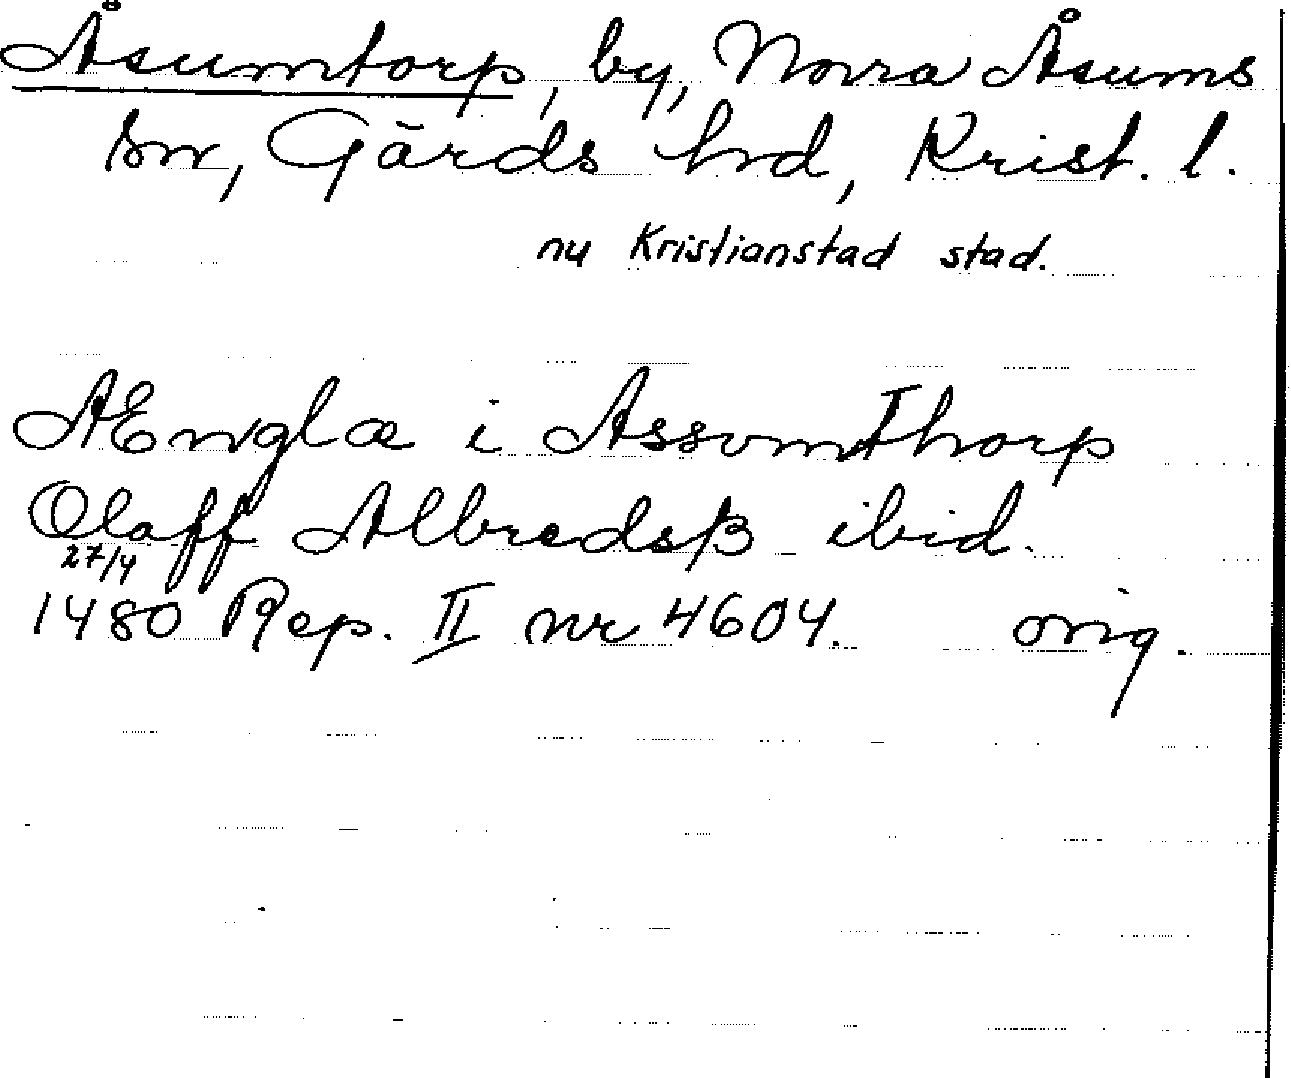 Åsumtorp, by, Norra Åsums
sn, Gärds hrd, Krist. l.
nu Kristianstad stad.
AEnglæ i Assvmthorp
Olaff Albredsß ibid.
27/4
1480 Rep. II nr 4604. orig.